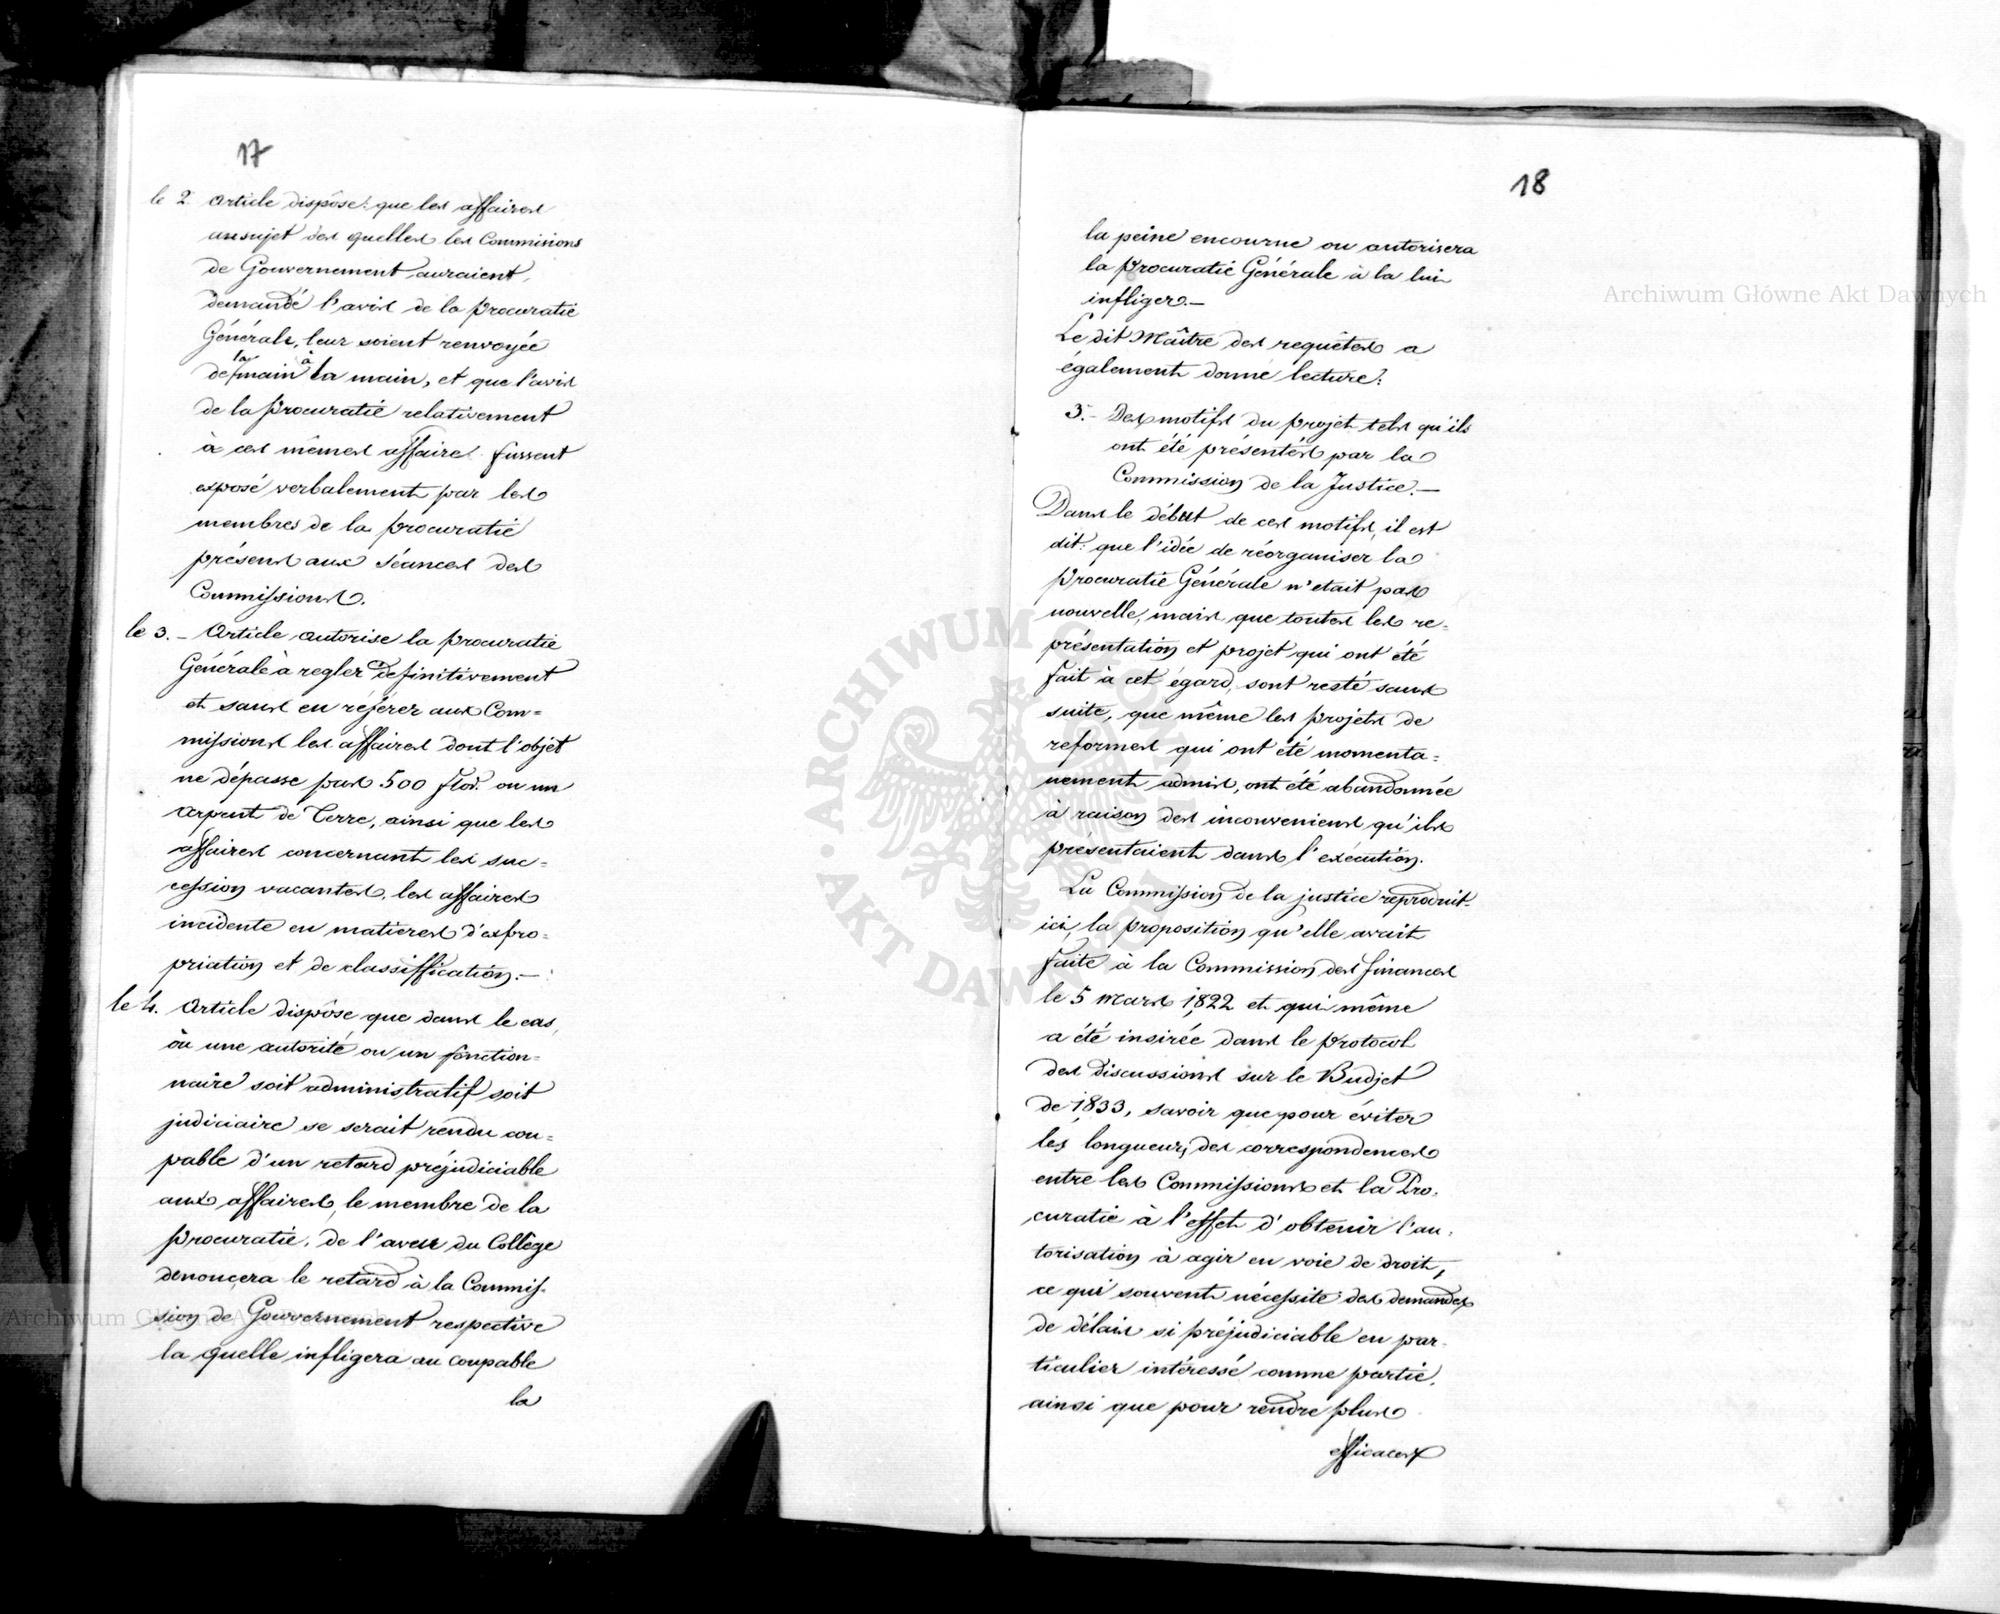 17
le 2. Article dispose: que les affaires
au sujet des quelles les Commissions
de Gouvernement auraient
demandé l'avis de la Procuratie
Générale, leur soient renvoyée
de la main à la main, et que l'avis
de la Procuratie relativement
à ces mêmes affaires fussent
exposé verbalement par les
membres de la Procuratie
présens aux séances des
Commissions.
le 3. – Article autorise la Procuratie
Générale à regler définitivement
et sans en référer aux Com=
missions les affaires dont l'objet
ne dépasse pas 500 flor. ou un
arpent de Terre, ainsi que les
affaires concernant les suc=
cession vacantes, les affaires
incidente en matieres d'expro=
priation et de classiffication. –
le 4. Article dispôse que dans le cas,
où une autorité ou un fonction=
naire soit administratif soit
judiciaire se serait rendu cou=
pable d'un retard préjudiciable
aux affaires, le membre de la
Procuratie, de l'aveu du Collège
denoncera le retard à la Commis-
sion de Gouvernement respective
la quelle infligera au coupable
la
18
la peine encourue ou autorisera
la Procuratie Générale à la lui
infliger. –
Le dit Maître des requêtes a
également donné lecture:
3. – Des motifs du projet tels qu'ils
ont été présentés par la
Commission de la Justice. –
Dans le début de ces motifs, il est
dit: que l'idée de réorganiser la
Procuratie Générale n'etait pas
nouvelle, mais que toutes les re=
présentation et projet qui ont été
fait à cet égard, sont resté sans
suite, que même les projets de
reformes qui ont été momenta=
nement admis, ont été abandonnée
à raison des inconveniens qu'ils
présentaient dans l'exécution.
La Commission de la justice reproduit
ici, la proposition qu'elle avait
faite à la Commission des finances
le 5 Mars 1822 et qui même
a été insirée dans le protocol
des discussions sur le Budjet
de 1833, savoir que pour éviter
les longueurs des correspondences
entre les Commissions et la Pro=
curatie à l'effet d'obtenir l'au=
torisation à agir en voie de droit,
ce qui souvent nécessite des demandes
de délais si préjudiciable en par-
ticulier intéressé comme partie,
ainsi que pour rendre plus
efficaces
Archiwum Główne Akt Dawnych
Archiwum Główne Akt Dawnych
ARCHIWUM GŁÓWNE AKT DAWNYCH